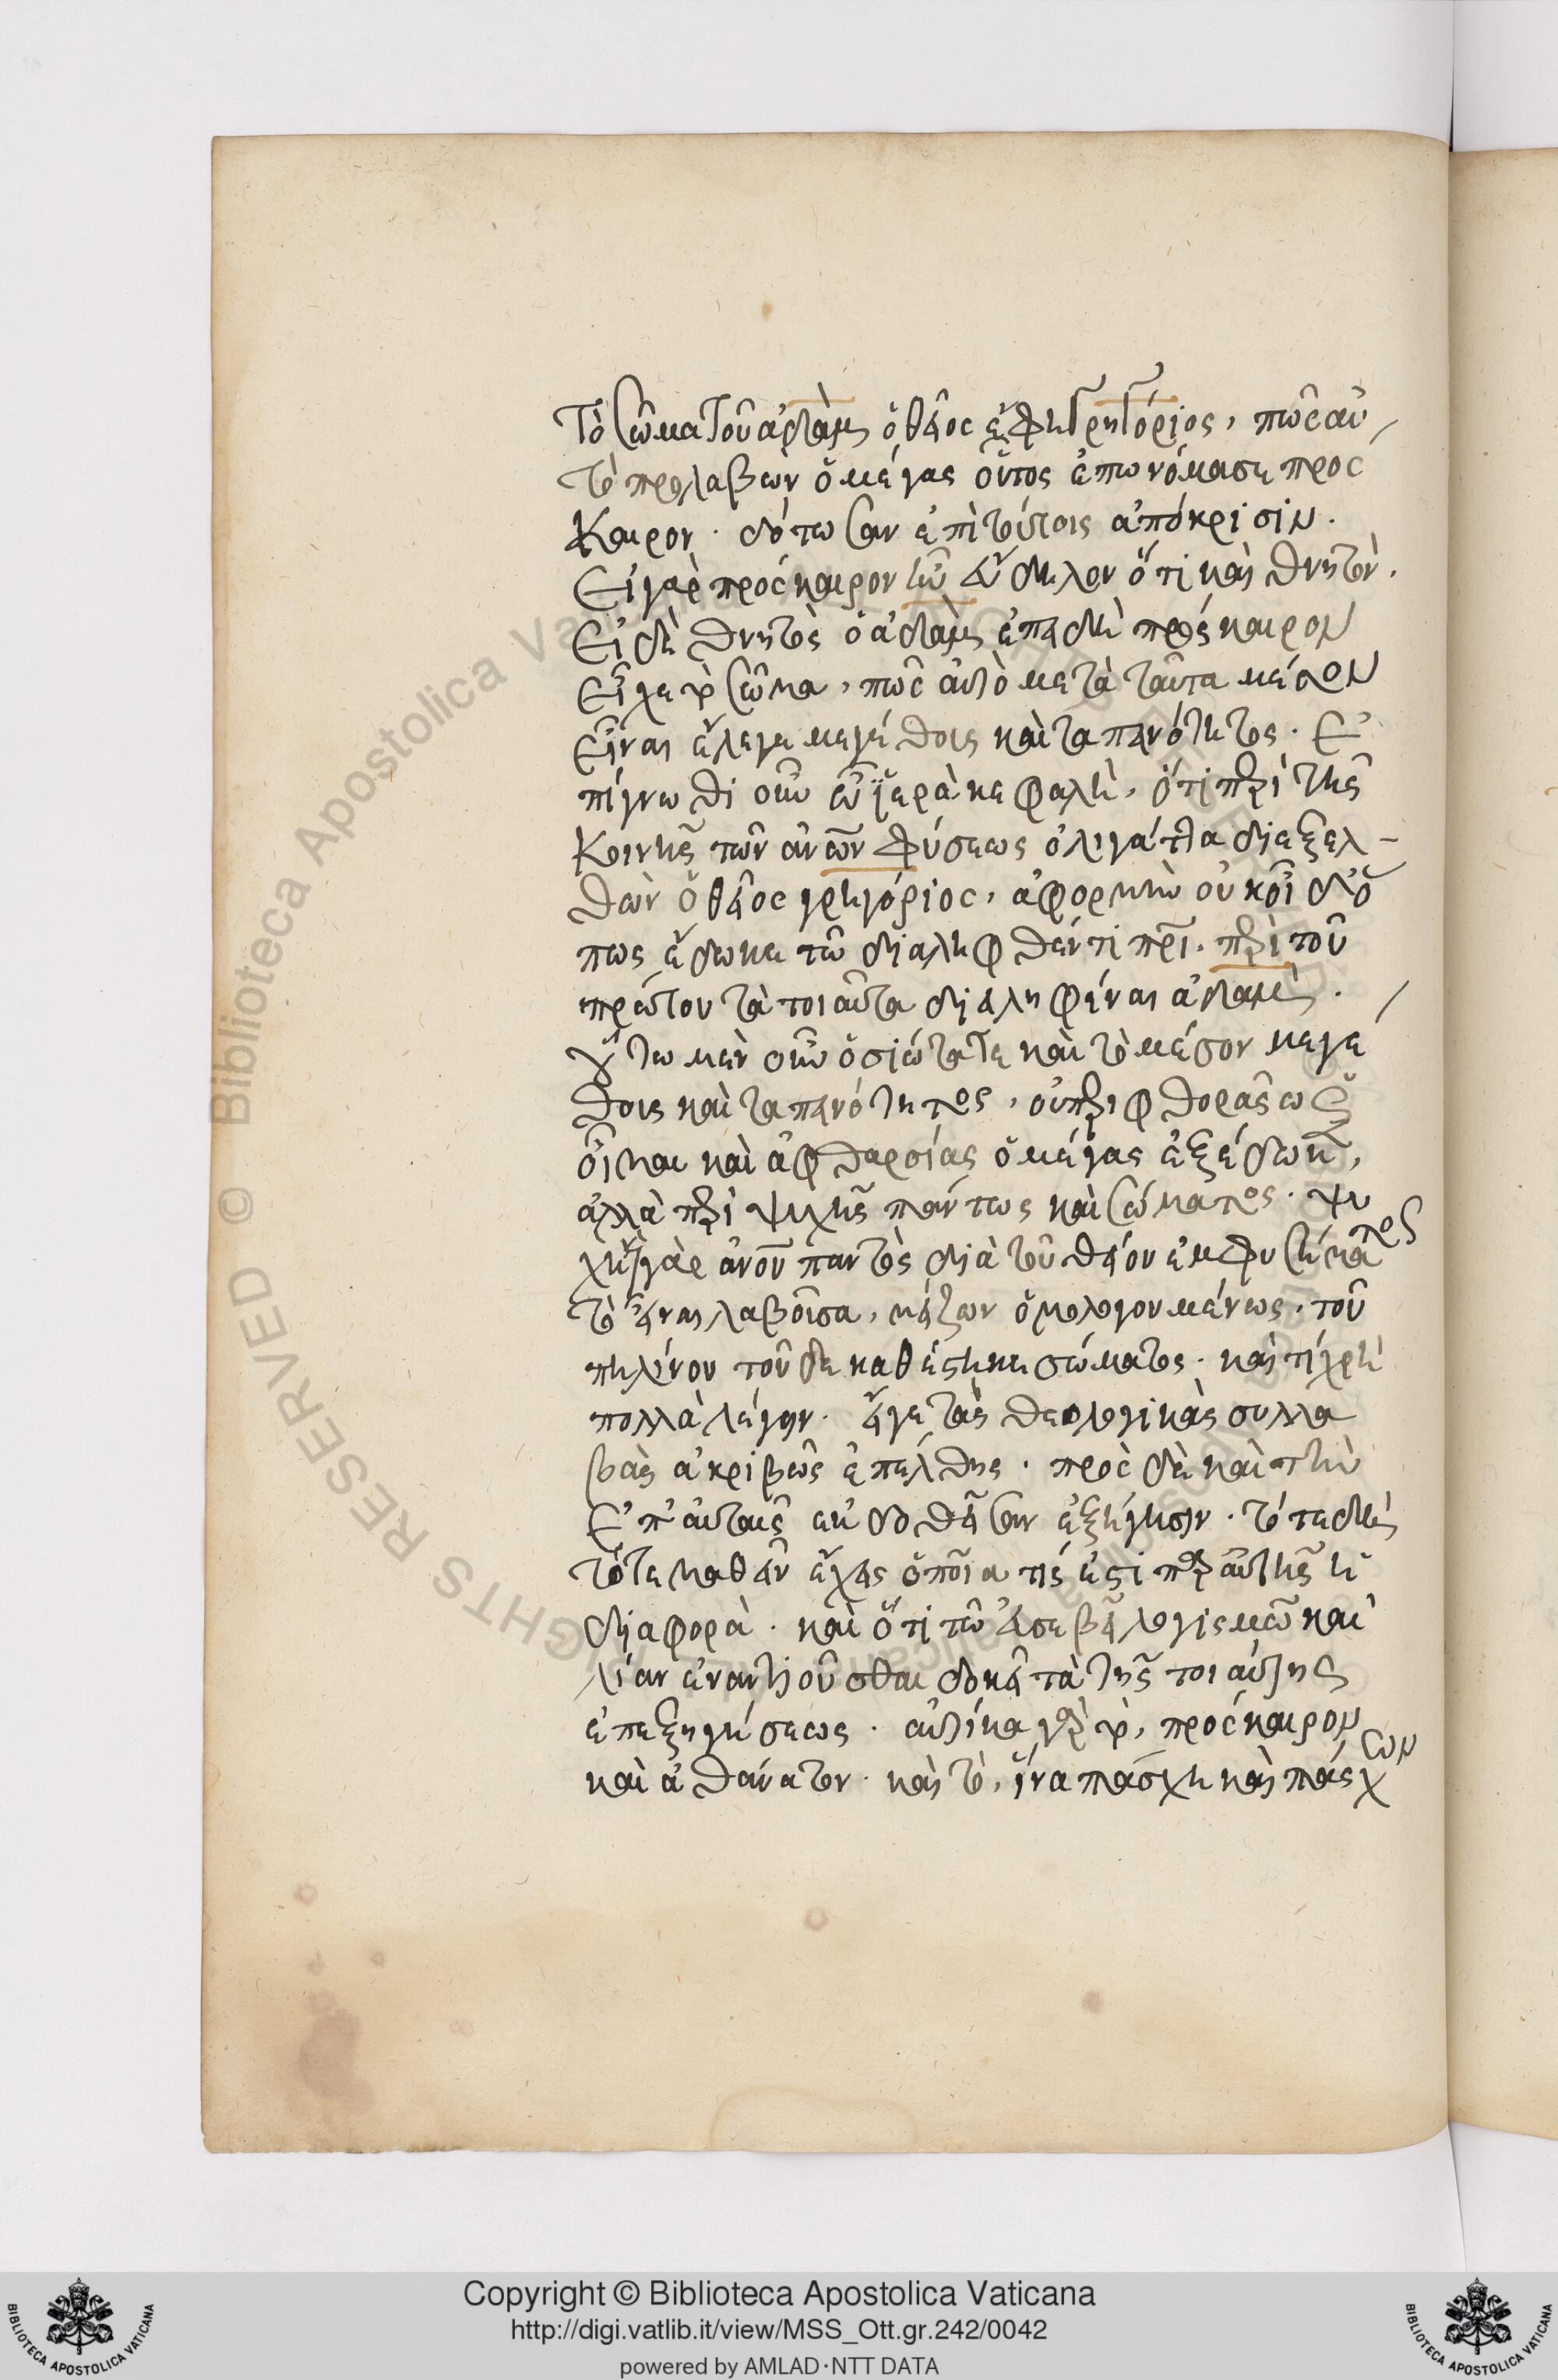 Τὸ σῶμα τοῦ ἀδὰμ ὁ θεῖος ἔφη Γρηγόριος, πῶς αὐ
τὸ προλαβὼν ὁ μέγας οὗτος ἐπωνόμασε προσ
καιρον. δότωσαν ἐπὶ τούτοις ἀπόκρισιν.
Εἰ γὰρ πρόσκαιρον ἦν εὔδηλον ὅτι καὶ θνητόν.
Εἰ δὲ θνητὸς ὁ ἀδὰμ ἐπειδὴ πρόσκαιρον
εἶχε τὸ σῶμα, πῶς αὐτὸ μετὰ ταῦτα μέσον
εἶναι ἔλεγε μεγέθους καὶ ταπεινότητος. Ἐ
πίγνωθι οὖν ὦ ἱερὰ κεφαλὴ, ὅτι πρὶ τῆς
κοινῆς τῶν ἀνων φύσεως ὀλίγάττα διεξελ-
θὼν ὁ θεῖος γρηγόριος, ἀφορμὴν οὐκ οἶδ' ὅ
πως ἔδωκε τῶ διαληφθέντι πρι. πρὶ τοῦ
πρώτου τὰ τοιαῦτα διειληφέναι ἀδὰμ.
οὕτω μὲν οὖν ὁσιώτατε καὶ τὸ μέσον μεγέ
θους καὶ ταπεινότητος, οὐ πρὶ φθορᾶς ὡς
οἶμαι καὶ ἀφθαρσίας ὁ μέγας ἐξέδωκε,
ἀλλὰ πρὶ ψυχῆς πάντως καὶ σώματος. ψυ
χὴ γὰρ ἀνου παντὸς διὰ τοῦ θείου ἐμφυσήματος
τὸ εἶναι λαβοῦσα, μείζων ὁμολογουμένως. τοῦ
πηλίνου τοῦδε καθέστηκε σώματος. καὶ τί χρὴ
πολλὰ λέγειν. εἴγε τὰς θεολογικὰς συλλα
βὰς ἀκριβῶς ἐπέλθης. πρὸς δὲ καὶ τὴν
ἐπ' αὐταῖς ἐκδοθεῖσαν ἐξήγησιν. τότε δὴ
τότε μαθεῖν ἔχεις ὁποία τίς ἐστι πρ αὐτῆς ἡ
διαφορὰ. καὶ ὅτι τῶ εὐσεβεῖ λογισμῶ καὶ
λίαν ἐναντιοῦσθαι δοκεῖ τὰ τῆς τοιαύτης
ἐπεξηγήσεως. αὐτίκα γὰρ τὸ, πρόσκαιρον
καὶ ἀθάνατον. καὶ τὸ, ἵνα πάσχη καὶ πάσχων